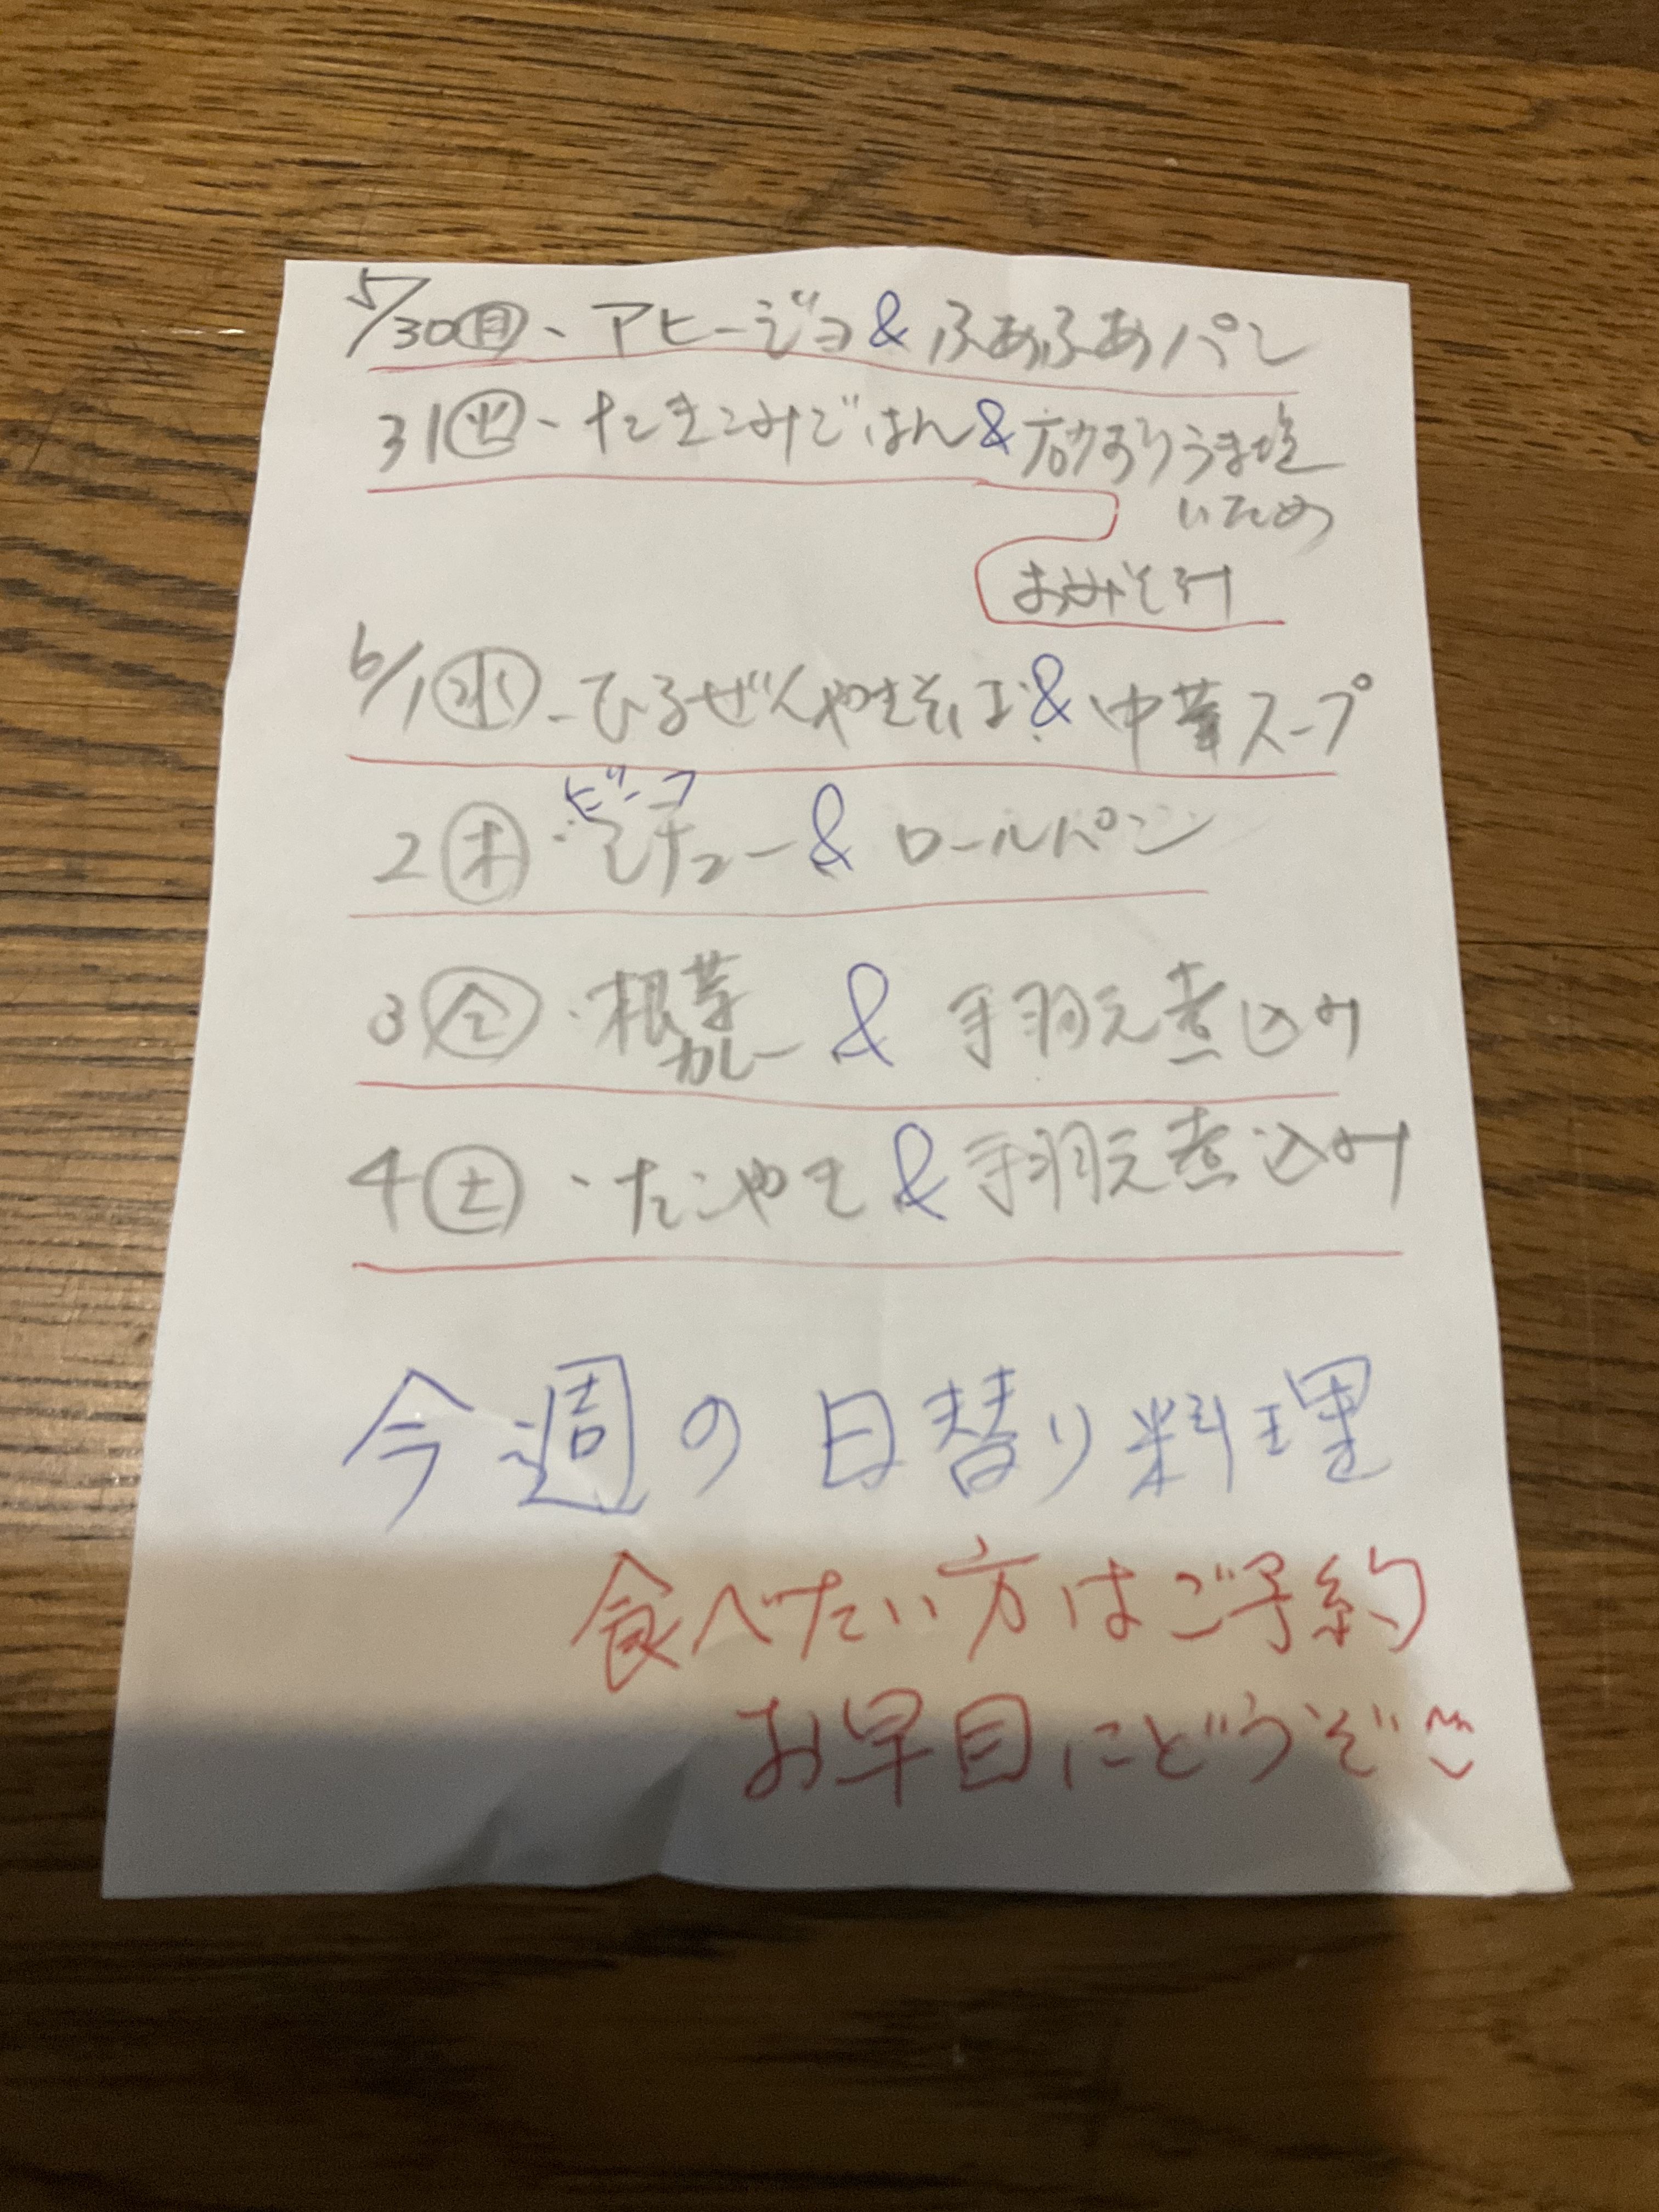 5/30(月)、アヒージョ&ふあふあパン
31(火)、たきこみごはん&砂ずりうま塩
いため
おみそ汁
6/1(水)、ひるぜんやきそば&中華スープ
2(木)・ビーフシチュー&ロールパン
3(金)・根菜カレー&手羽元煮込み
4(土)、たこやき&手羽元煮込み
今週の日替り料理
食べたい方はご予約
お早目にどうぞ